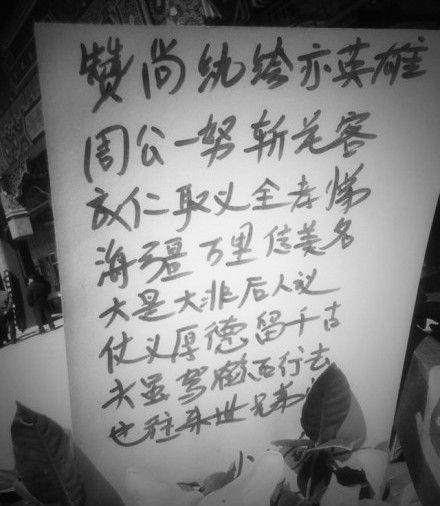 赞尚纨绔亦英雄
周公一努斩花客
成仁取义全孝悌
海疆万里传美名
大是大非后人议
仗义厚德留千古
大显驾鹤西行去
也往来世兄弟